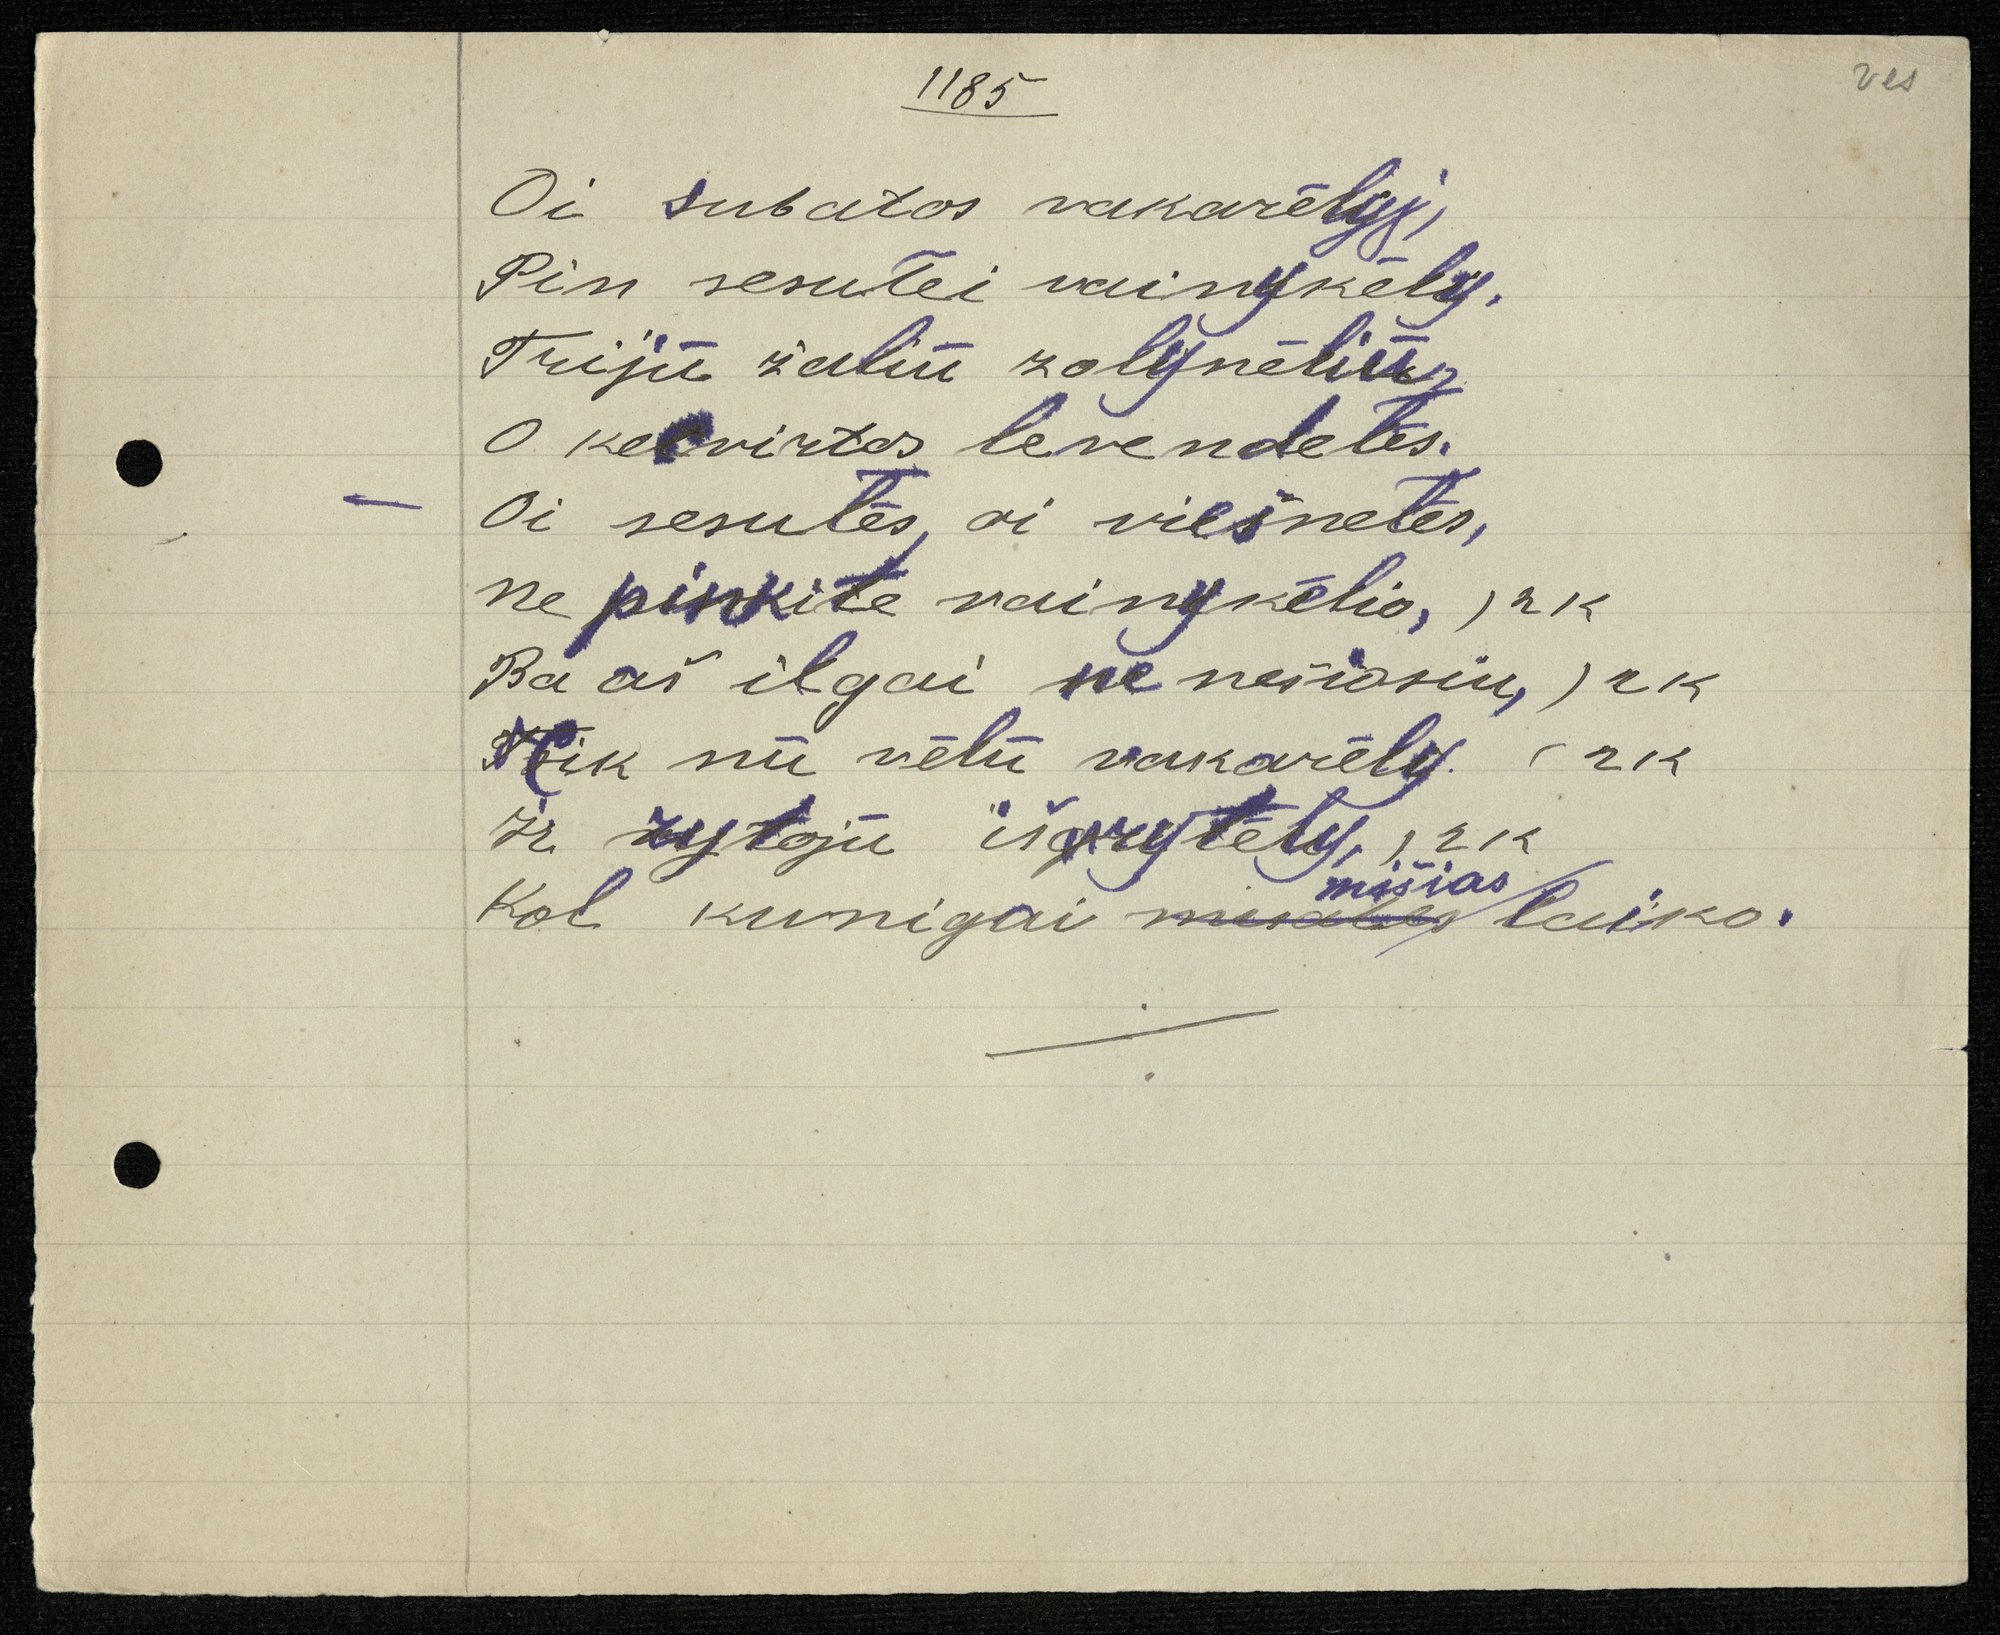 1185
ves
Oi subatos vakarēlyj,
Pin sesutēi vainykēly.
Trijū žaliū zolynēliū,
O ketvirtos levendetēs.
— Oi sesutēs, oi viešnetēs,
ne pinkitē vainykēlio, ) 2 K
Ba aš ilgai ne nešiosiu, ) 2 K
Tik nū vēlū vakarēly. ( 2 K
Ir rytojū iš rytēly, ) 2 K
mišias
Kol kunigai laiko.